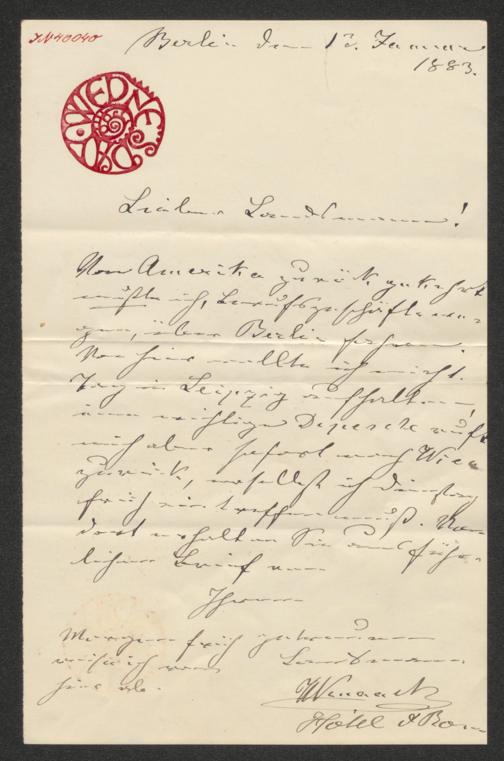 IN 40040
Berlin den 13. Januar
1883.
WIEDNE'S DROW
Lieber Landsmann!
Von Amerika zurückgekehrt
mußte ich, Berufsgeschäfte we-
gen, über Berlin fahren.
Von hier wollte ich mich 1
Tag in Leipzig aufhalten,
eine wichtige Depesche ruft
mich aber sofort nach Wien
zurück, woselbst ich Dienstag
früh eintreffen muß. Von
dort erhalten Sie ausführ-
lichen Brief von
Ihrem
Morgen früh
reise ich von Landsmann
hier ab.
Hôtel d Rom